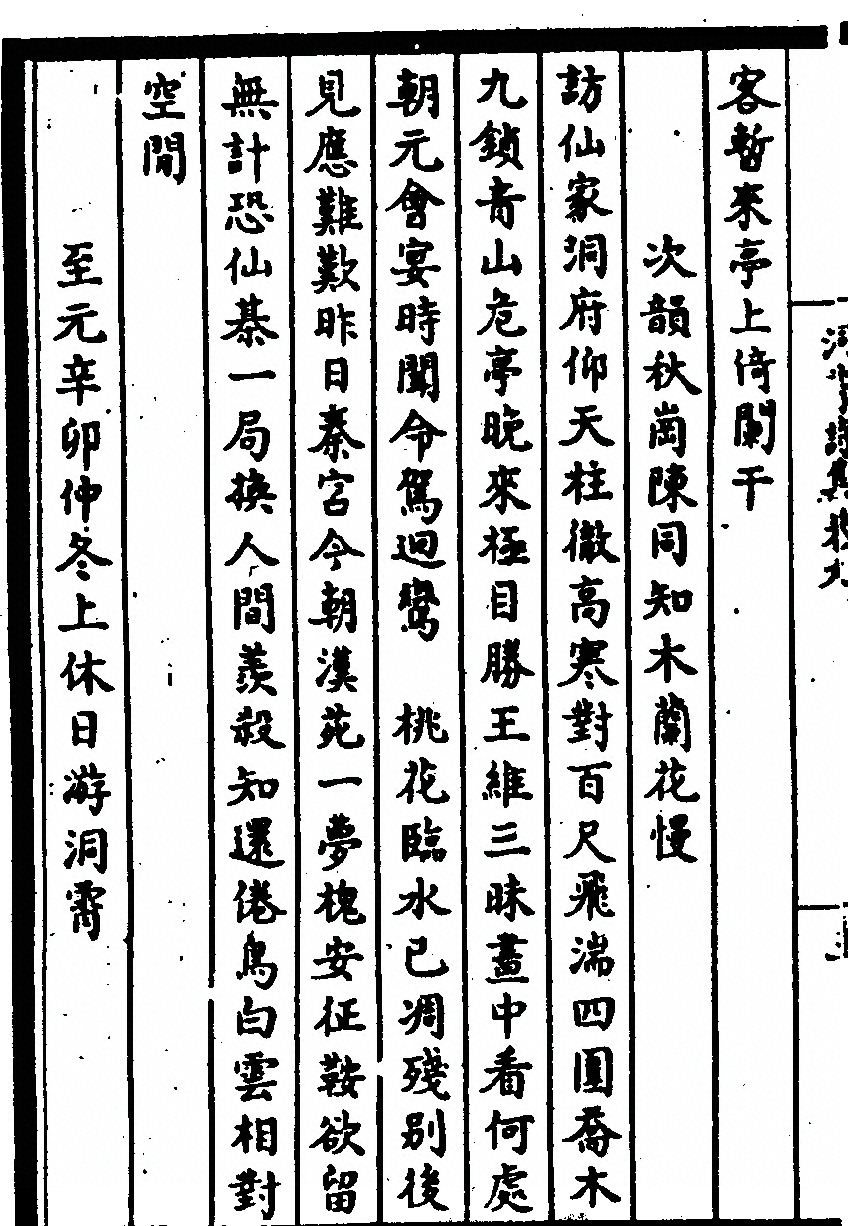 客暫來亭上倚闌干
次韻秋崗陳同知木蘭花慢
訪仙家洞府仰天柱徹高寒對百尺飛湍四圍喬木
九鎖青山危亭晚來極目勝王維三昧畫中看何處
朝元會宴時聞令駕迴鸞　桃花臨水已凋殘别後
見應難歎昨日秦宮今朝漢苑一夢槐安征鞍欲留
無計恐仙棊一局換人間羨殺知還倦鳥白雲相對
空閒
至元辛卯仲冬上休日游洞霄